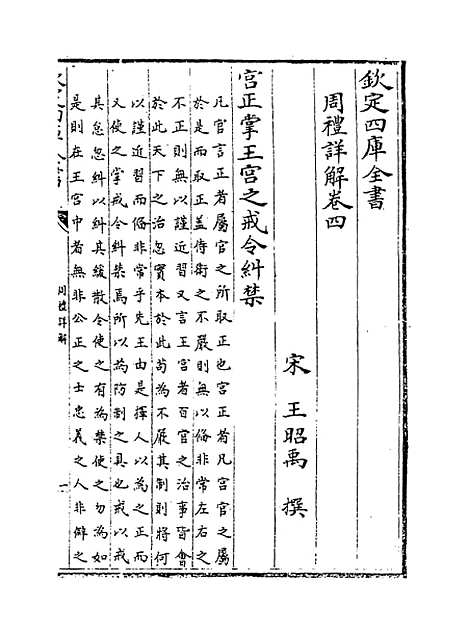 欽定四庫全書
周禮詳解卷四
宋　王昭禹　撰
宮正掌王宮之戒令糾禁
凡官言正者屬官之所取正也宮正者凡宮官之屬
於是而取正盖侍衛之不嚴則無以偹非常左右之
不正則無以謹近習又言王宮者百官之治事皆會
於此天下之治忽實本於此茍為不嚴其制則將何
以謹近習而偹非常乎先王由是擇人以為之正而
又使之掌戒令糾禁焉所以為防制之具也戒以戒
其怠忽糾以糾其緩散令使之有為禁使之勿為如
是則在王宮中者無非公正之士忠義之人非僻之
周禮詳解
一